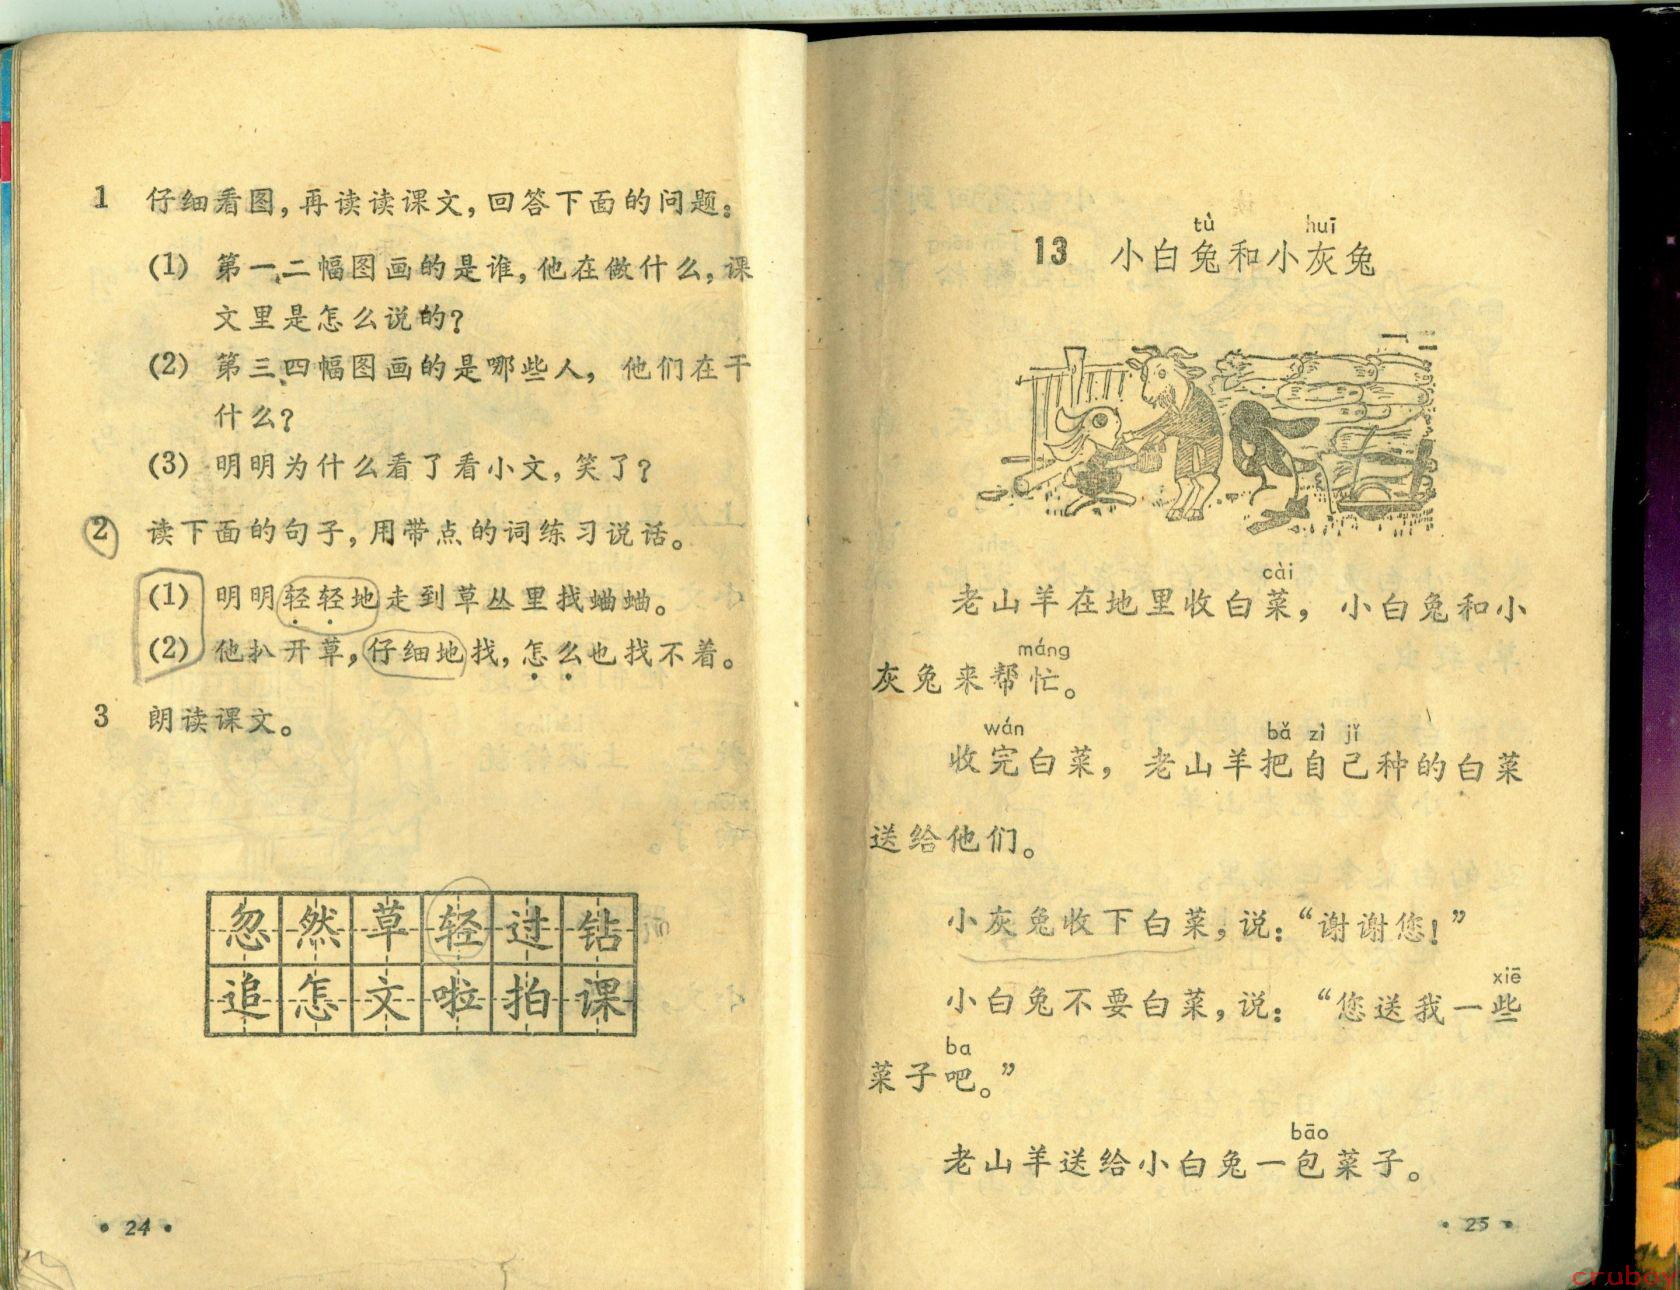 1 仔细看图,再读读课文,回答下面的问题:
(1) 第一、二幅图画的是谁,他在做什么,课
文里是怎么说的?
(2) 第三、四幅图画的是哪些人, 他们在干
什么?
(3) 明明为什么看了看小文,笑了?
2 读下面的句子,用带点的词练习说话。
(1) 明明轻轻地走到草丛里找蛐蛐。
(2) 他扒开草,仔细地找,怎么也找不着。
3 朗读课文。
忽然草轻过钻
追怎文啦拍课
· 24 ·
tù huī
13 小白兔和小灰兔
cài
老山羊在地里收白菜, 小白兔和小
máng
灰兔来帮忙。
wán bǎ zì jǐ
收完白菜, 老山羊把自己种的白菜
送给他们。
小灰兔收下白菜,说:“谢谢您!”
xiē
小白兔不要白菜,说: “您送我一些
ba
菜子吧。”
bāo
老山羊送给小白兔一包菜子。
· 25 ·
cruboy